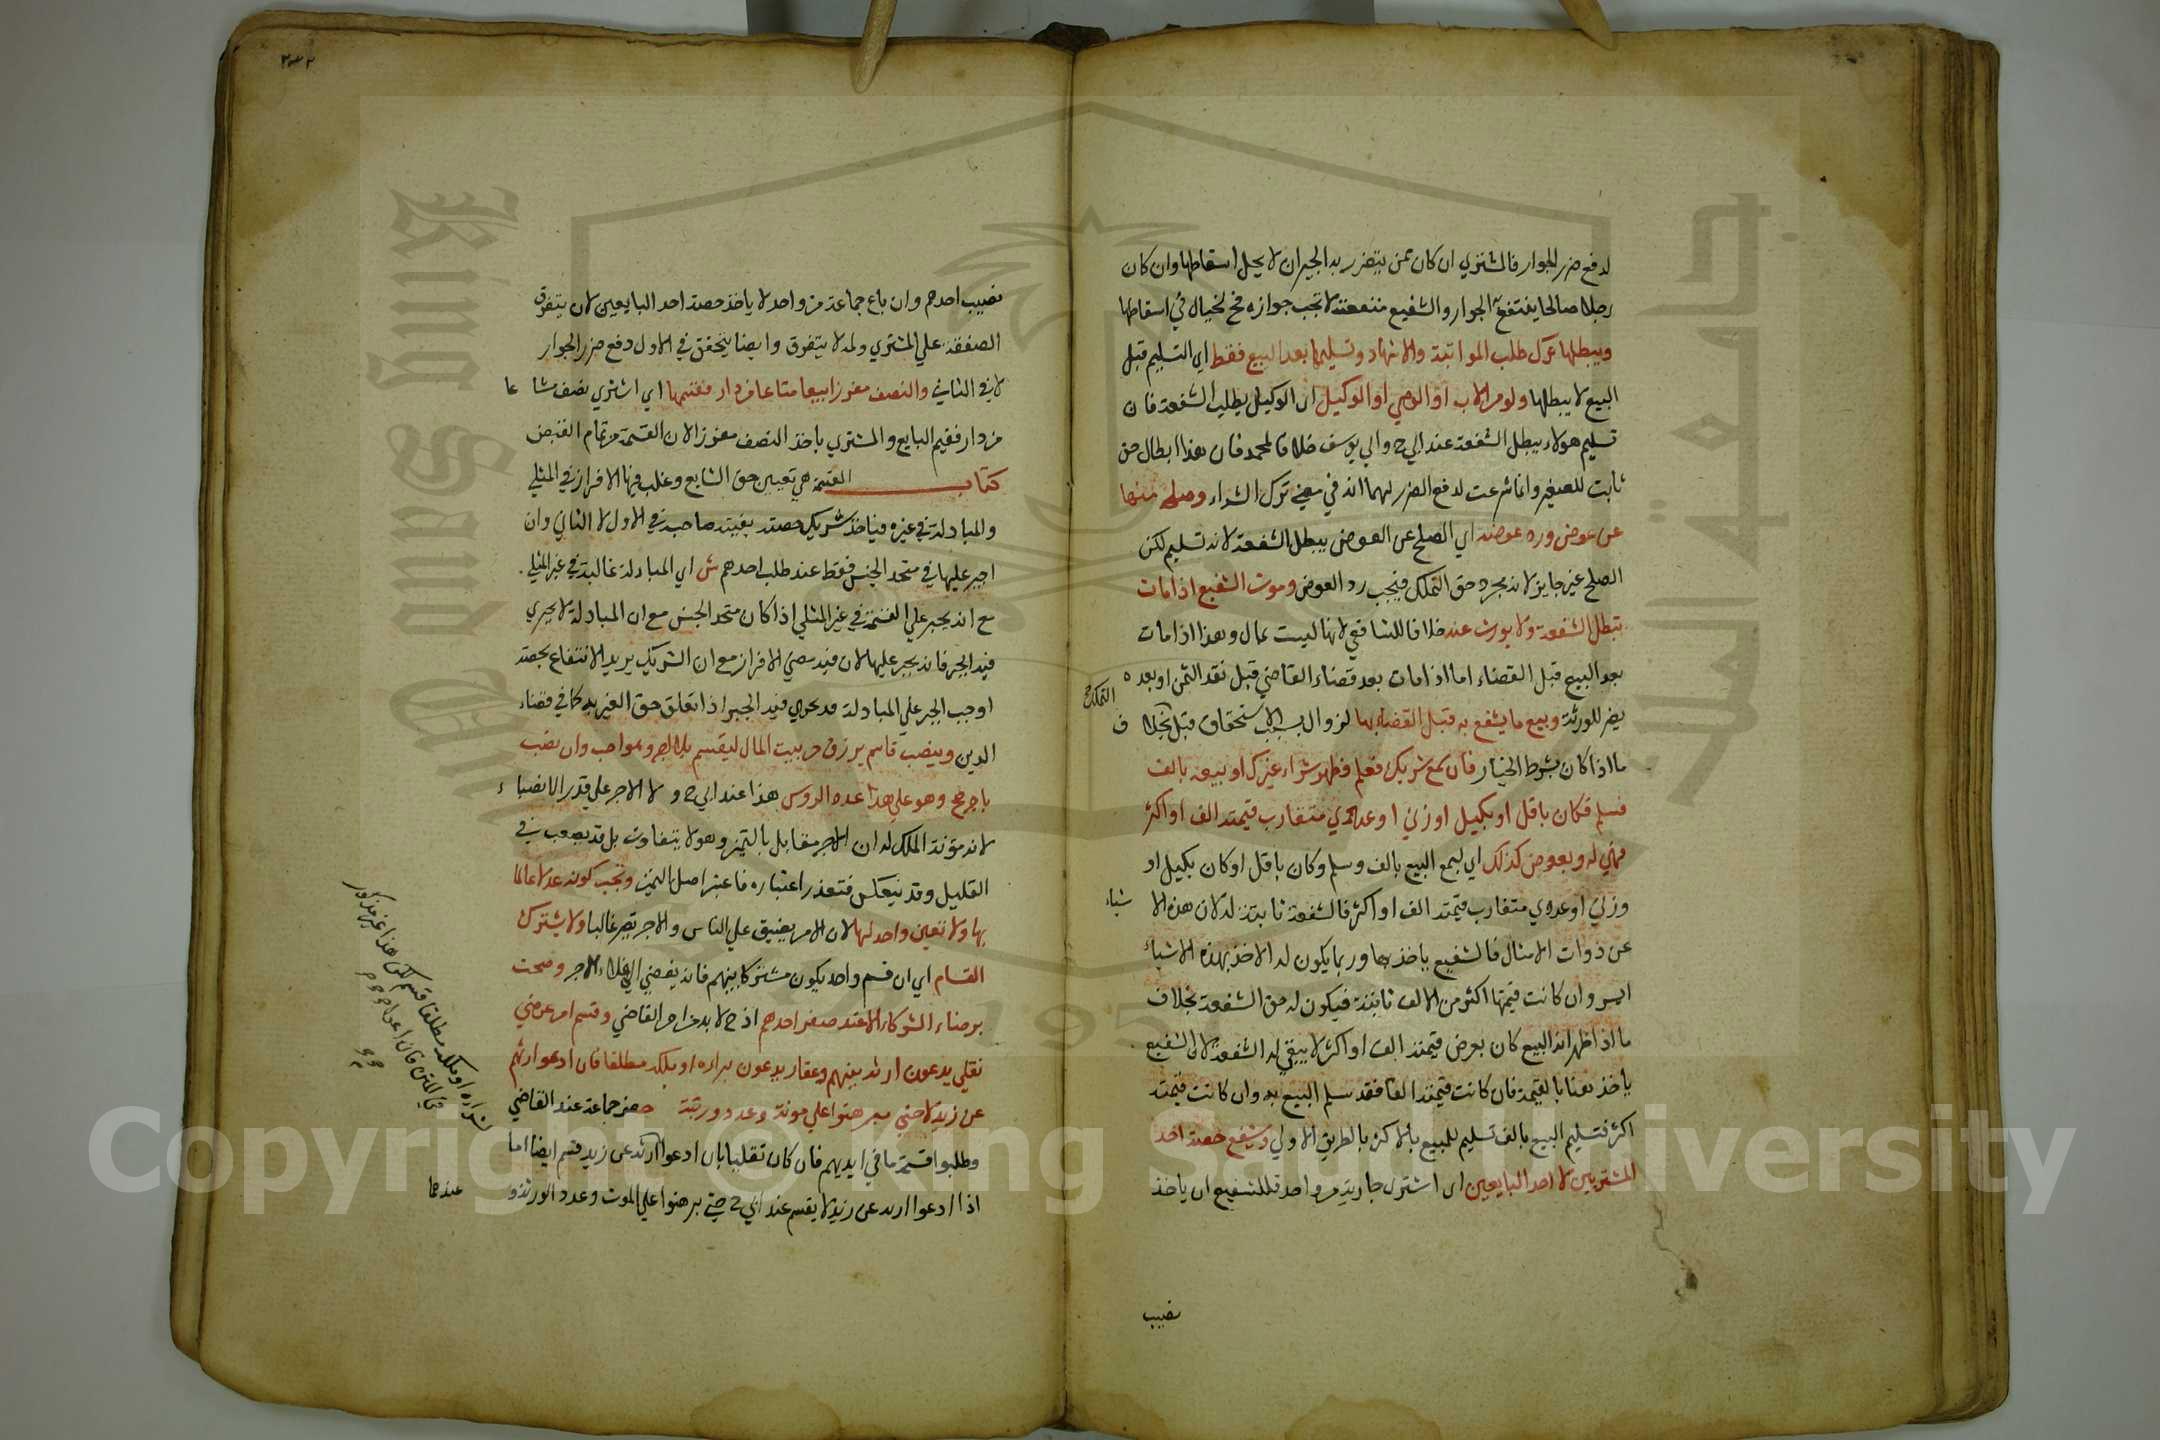 لدفع ضرر الجوار فالمشتري ان كان ممن يتضرر به الجيران لا يحل اسقاطها وان كان
رجلا صالحا ينتفع به الجوار والشفيع متعنت لا تجب جواره فح يحتال في اسقاطها
ويبطلها ترك طلب المواثبة والاشهاد وتسليمها بعد البيع فقط اي التسليم قبل
البيع لا يبطلها ولو من الاب او الوصي او الوكيل اي الوكيل بطلب الشفعة فان
تسليم هولاء يبطل الشفعة عند ابي ح وابي يوسف خلافا لمحمد فان هذا ابطال حق
ثابت للصغير وانما شرعت لدفع الضرر لهما انه في معني ترك الشراء وصلحه منها
عن عوض ورد عوضه اي الصلح عن العوض يبطل الشفعة لانه تسليم لكن
الصلح غير جايز لانه مجرد حق التملك فيجب رد العوض وموت الشفيع اذا مات
تبطل الشفعة ولا يورث عنه خلافا للشافعي لانها ليست بمال وهذا اذا مات
بعد البيع قبل القضاء اما اذا مات بعد قضاء القاضي قبل نقد الثمن او بعده
يصر للورثة وبيع ما يشفع به قبل القضاء بها لزوال سبب الاستحقاق قبل التملك بخلاف
ما اذا كان بشرط الخيار فان سمع شريك فسلم فظهر شراء غيرك او بيعه بالف
فسلم فكان باقل او بكيل او زني او عددي متقارب قيمته الف او اكثر
فهي له وبعرض كذلك اي سمع البيع بالف وسلم وكان باقل او كان بكيل او
وزني او عددي متقارب قيمته الف او اكثر فالشفعة ثابتة له لان هذه الاشياء
من ذوات الامثال فالشفيع ياخذ بها وربما يكون له الاخذ بهذه الاشياء
ايسر وان كانت قيمتها اكثر من الالف ثابتة فيكون له حق الشفعة بخلاف
ما اذا ظهر ان البيع كان بعرض قيمته الف او اكثر لا يبقي له الشفعة لان الشفيع
ياخذ هنا بالقيمة فان كانت قيمته الفا فقد سلم البيع به وان كانت قيمته
اكثر فتسليم البيع بالف تسليم للبيع بالاكثر بالطريق الاولي وشفع حصة احد
المشتريين لا احد البايعين اي اشتري جماعة من واحد فللشفيع ان ياخذ
نصيب
٣٣٢
نصيب احدهم وان باع جماعة من واحد لا ياخذ حصة احد البايعين لان يتفرق
الصفقة علي المشتري وثمه لا يتفرق وايضا يتحقق في الاول دفع ضرر الجوار
لا في الثاني والنصف مفرزا بيعا مشاعا من دار فقسمها اي اشتري نصف مشاعا
من دار فقسم البايع والمشتري ياخذ النصف مفرزا لان القسمة من تمام القبض
كتاب القسمة هي تعيين حق الشايع وغلب فيها الافراز في المثلي
والمبادلة في غيره فياخذ شريك حصته بغيبة صاحبه في الاول لا الثاني وان
اجبر عليها في متحد الجنس فقط عند طلب احدهم ش اي المبادلة غالبة في غير المثلي
مع انه يجبر علي القسمة في غير المثلي اذا كان متحد الجنس مع ان المبادلة لا يجري
فيه الجبر فانه يجبر عليها لان فيه معني الافراز مع ان الشريك يريد الانتفاع بحصته
اوجب الجبر علي المبادلة قد يجري فيه الجبر اذا تعلق حق الغير به كما في قضاء
الدين وينصب قاسم يرزق من بيت المال ليقسم بلا اجر وهو احب وان نصب
باجر صح وهو علي عدد الروس هذا عند ابي ح و لا الاجر علي قدر الانصباء
لانه مؤنة الملك له ان الاجر مقابل بالتميز وهو لا يتفاوت بل قد يصعب في
القليل وقد ينعكس فتعذر اعتباره فاعتبر اصل التميز وتجب كونه عدلا عالما
بها ولا تعين واحد لها لان الامر يضيق علي الناس والاجر يصير غاليا ولا يشترك
القسام اي ان قسم واحد يكون مشتركا بينهم فانه يفضي الي غلاء الاجر وصحت
برضاء الشركاء الا عند صغر احدهم اذ ح لا بد من امر القاضي وقسم امر عرضي
نقلي يدعون ارثه بينهم وعقار يدعون شراءه او ملكه مطلقا فان ادعوا ارثهم
عن زيد لا حتي يبرهنوا علي موته وعدد ورثته حضر جماعة عند القاضي
وطلبوا قسمة ما في ايديهم فان كان نقليا بان ادعوا ارثه عن زيد قسم ايضا اما
اذا ادعوا ارثه عن زيد لا يقسم عند ابي ح حتي يبرهنوا علي الموت وعدد الورثة و عندهما
Copyright © King Saud University
King Saud University
1957